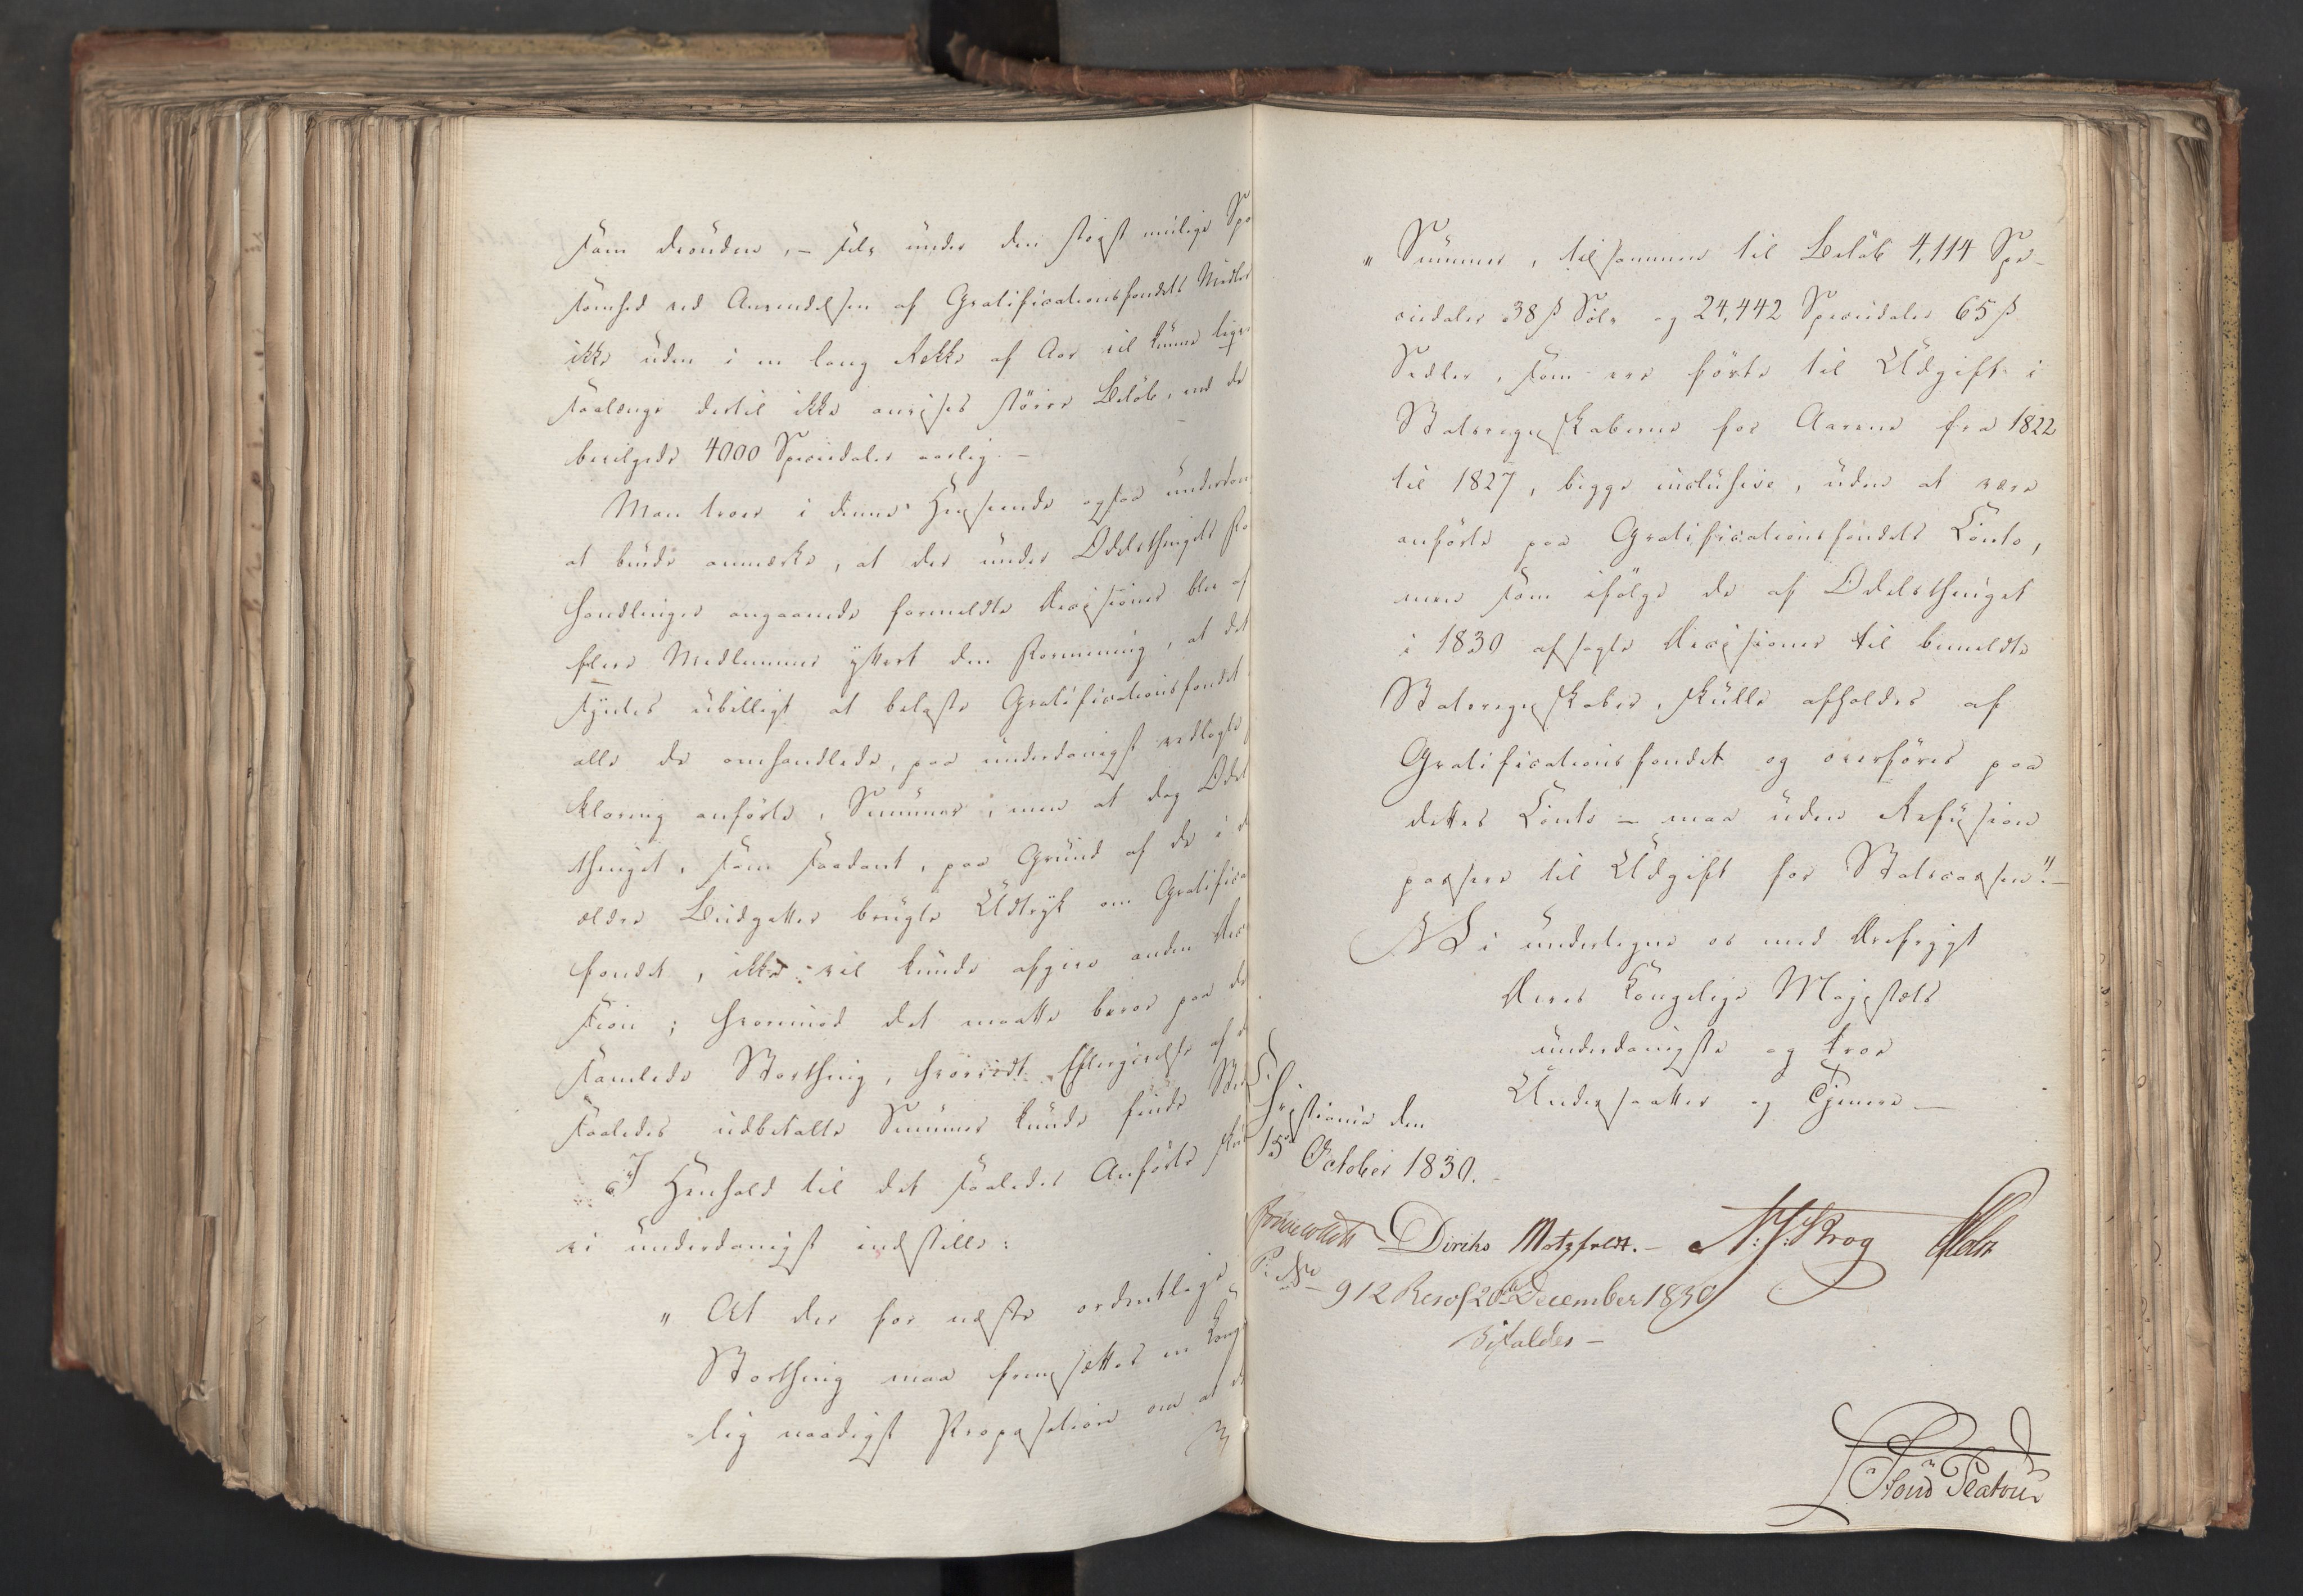 som desuden, – selv under den størst mulige Spa
somhed ved Anvendelsen af Gratificationsfondets Midler
ikke uden i en lang Række af Aar vil kunne
saalænge dertil ikke anvises større Beløb, end de
bevilgede 4000 Speciedaler aarlig. –
Man troer i denne Henseende ogsaa underdan
at burde anmærke, at der under Odelsthingets For
handlinger angaaende formeldte Decisioner blev af
flere Medlemmer yttret den Formening, at det
syntes ubilligt at belaste Gratificationsfondet
alle de omhandlede, paa underdanigst vedlagte
klaring anførte, Summer; men at dog Odel
thinget, som saadant, paa Grund af de i d
ældre Budgetter brugte Udtryk om Gratifica
fondet, ikke vil kunde afgive anden Deci
sion; hvorimod det maatte beroe paa det
samlede Storthing, hvorvidt Eftergivelse af d
saaledes udbetalte Summer kunde finde Sted
I Henhold til det saaledes Anførte skul
vi underdanigst indstille:
„At der for næste ordentlige
Storthing maa fremsættes en Konge
-lig naadigst Proposition om at de
„Summer, tilsammen til Beløb 4,114 Spe-
ciedaler 38 ß Sølv og 24,442 Speciedaler 65 ß
Sedler, som ere førte til Udgift i
Statsregnskaberne for Aarene fra 1822
til 1827, begge inclusive, uden at være
anførte paa Gratificationsfondets Conto,
men som ifølge de af Odelsthinget
i 1830 afsagte Decisioner til bemeldte
Statsregnskaber, skulle afholdes af
Gratificationsfondet og overføres paa
dettes Conto – maa uden Refusion
passere til Udgift for Statscassen". –
Vi undertegne os med Ærefrygt
Deres Kongelige Majestæts
underdanigste og troe
Undersaatter og Tjenere –
Christiania den
15de October 1830.
Diriks Motzfeldt. – N: J: Krog Holst
P: No
912 Resol 20de December 1830
Bifaldes –